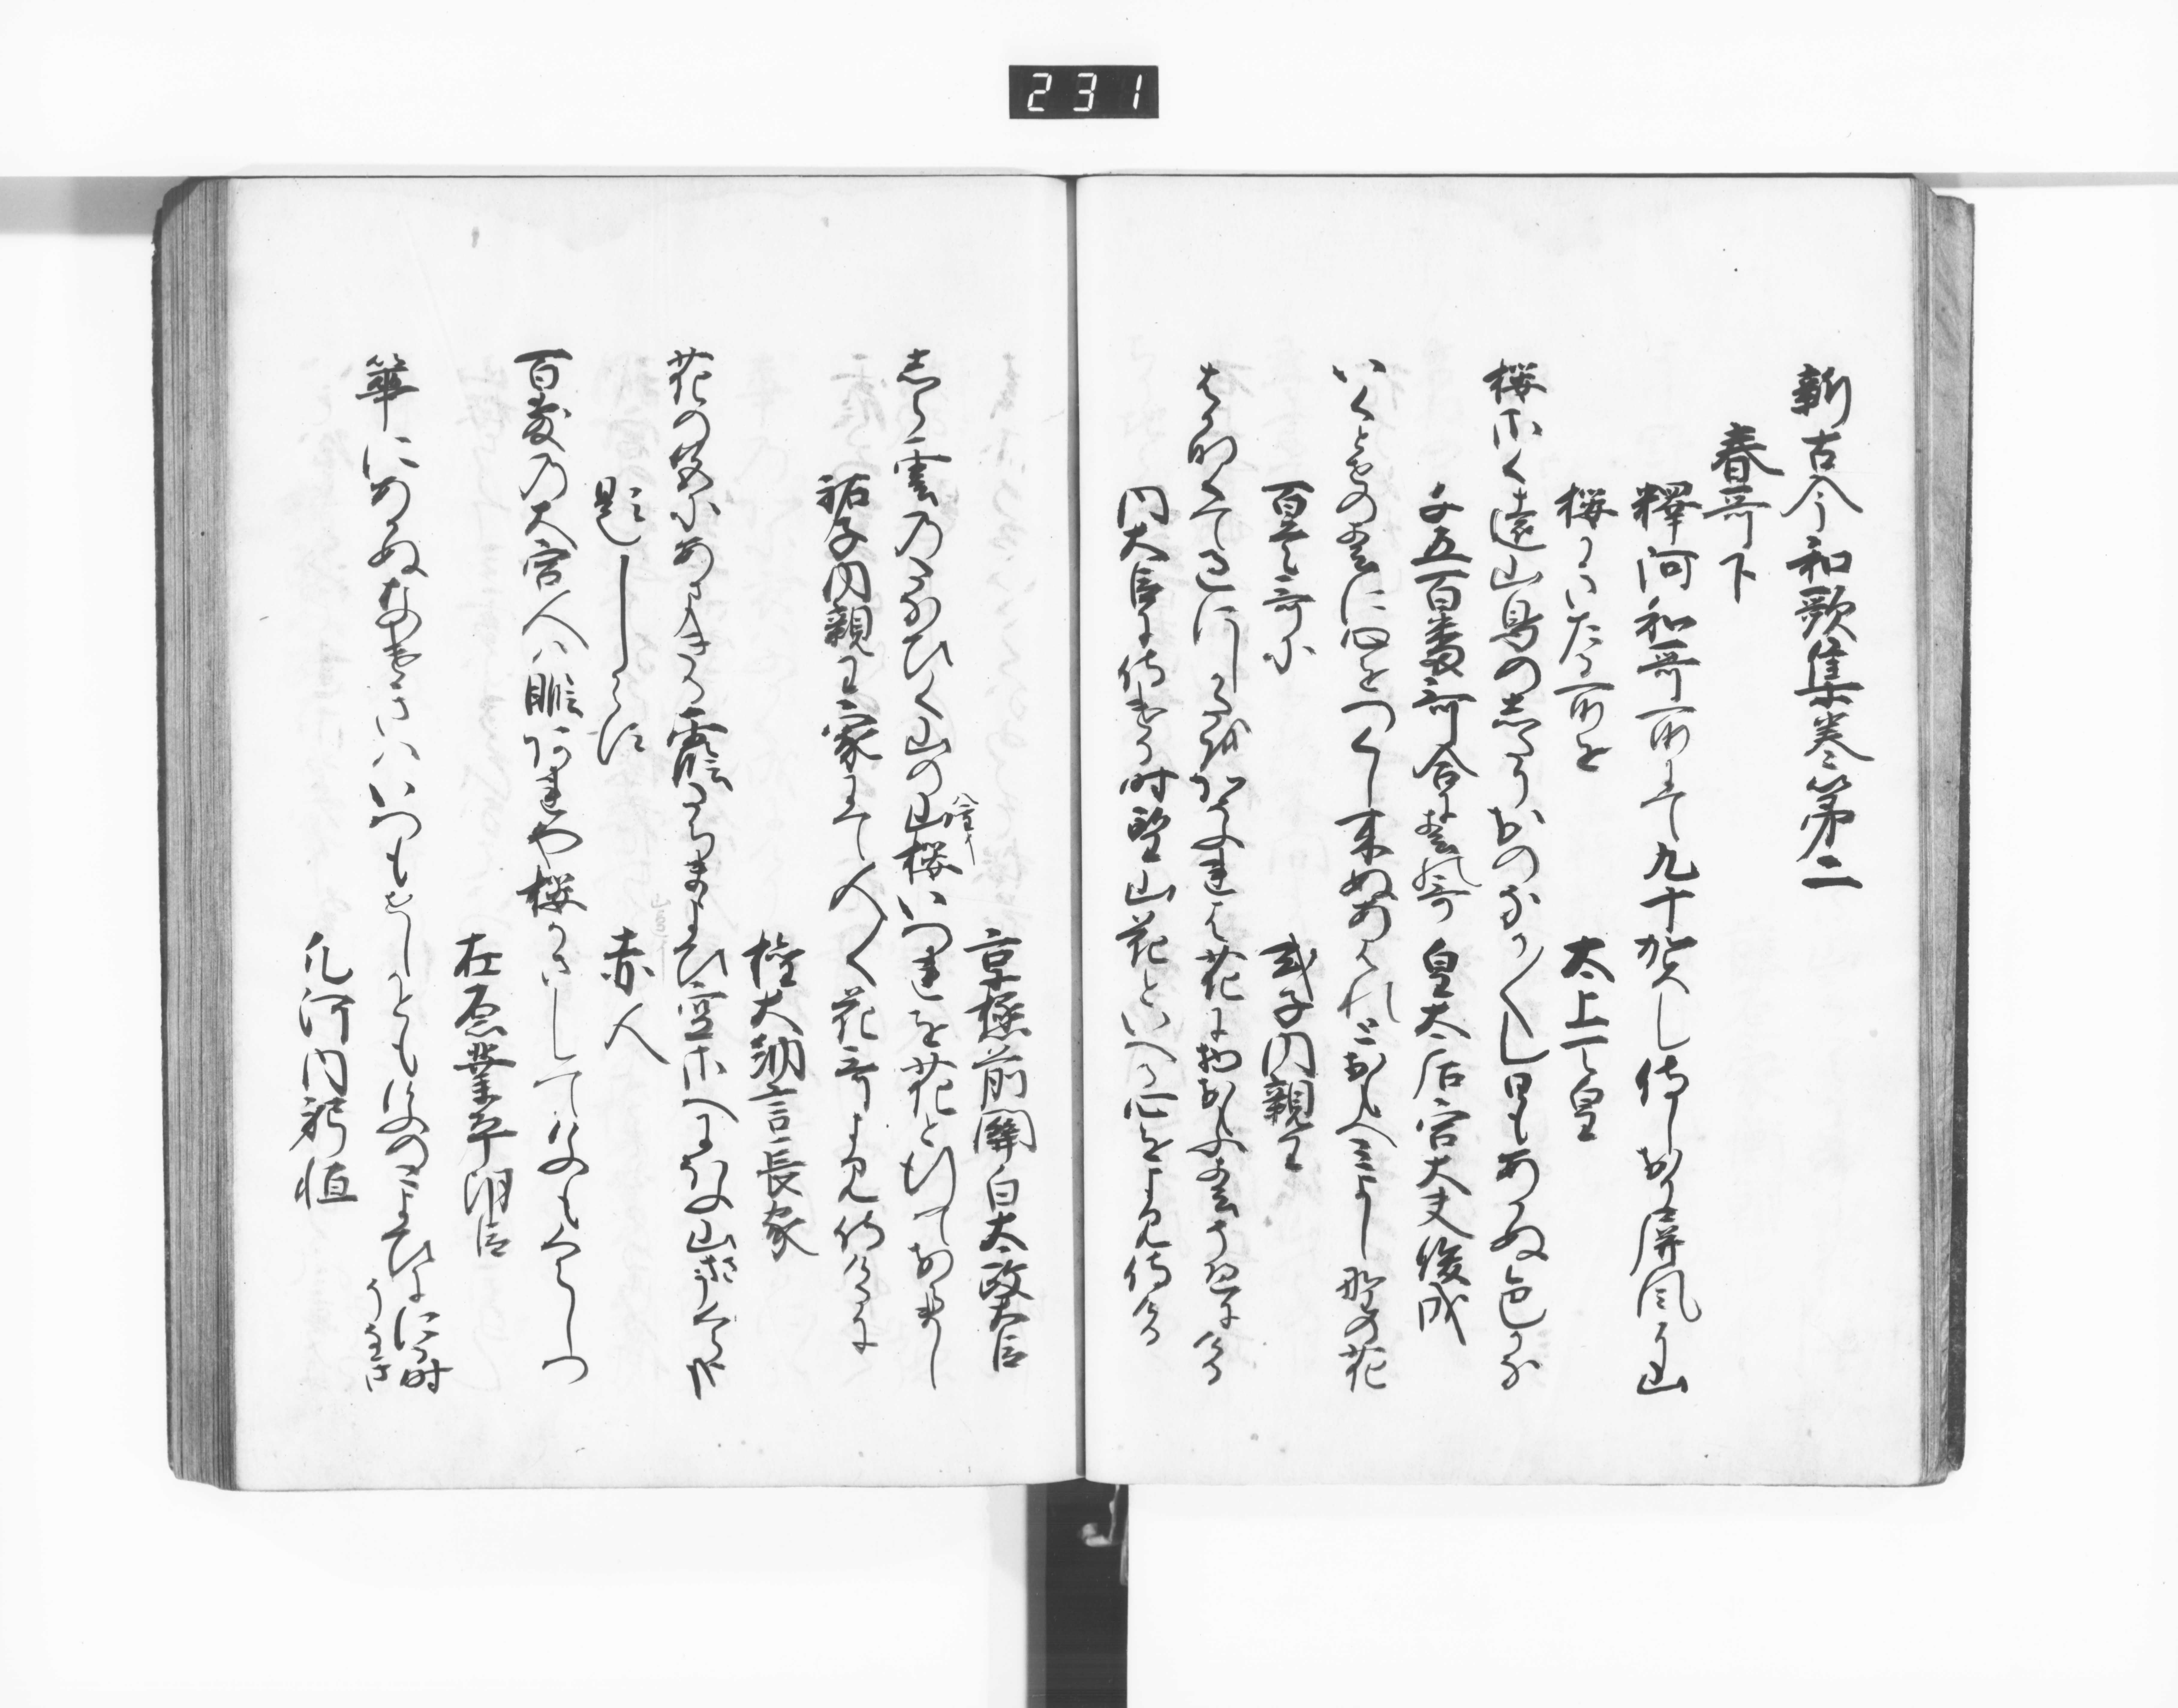 231
新古今和歌集巻第二
春哥下
釋阿和哥所にて九十賀し侍しおり屏風に山
桜かきたる所を　太上天皇
桜さく遠山鳥のしたりおのなか〱し日もあかぬ色かな
千五百番哥合に春哥　皇太后宮大夫俊成
いくとせの春に心をつくし来ぬあはれとおもへみよし野の花
百首哥に　式子内親王
はかなくて過にしかたをかそふれは花に物おもふ春そへにける
内大臣に侍ける時望山花といへる心をよみ侍ける
京極前關白太政大臣
志ら雲乃たなひく山の山桜いつれを花と行ておらまし
祐子内親王家にて人〱花哥よみ侍けるに
權大納言長家
花の色にあまきる霞たちまよひ空さへにほふ山さくらかな
題しらす　赤人
百敷乃大宮人ハ暇あれや桜かさしてけふもくらしつ
在原業平朝臣
花にあかぬなけきハいつもせしかともけふのこよひに
にる時
凡河内躬恒